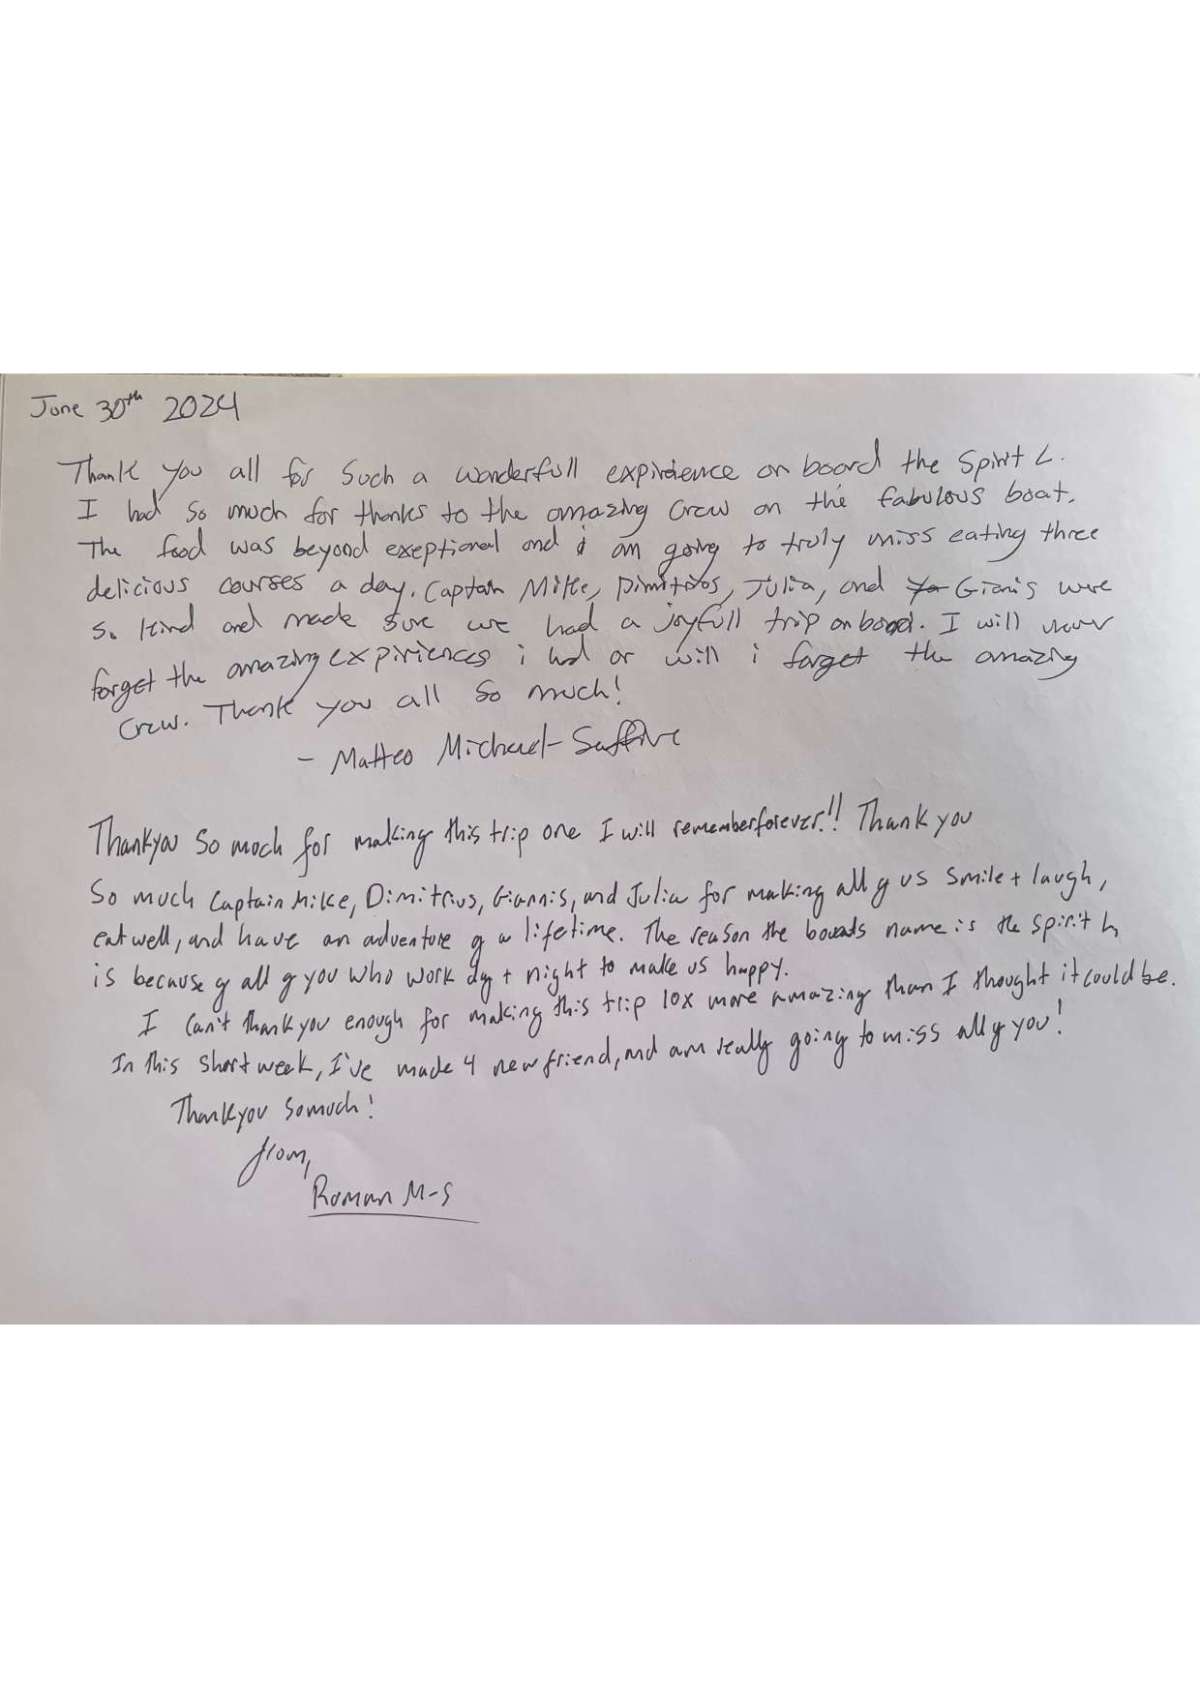 June 30th 2024
Thank you all for such a wonderfull expirdience on board the Spirit L.
I had so much for thanks to the amazing crew on the fabulous boat.
The food was beyond exeptional and i am going to truly miss eating three
delicious courses a day. Captain Mike, Dimitrios, Julia, and Gianis were
so kind and made sure we had a joyfull trip on board. I will never
forget the amazing expiriences i had or will i forget the amazing
crew. Thank you all so much!
- Matteo Michael-
Thankyou so much for making this trip one I will remember forever!! Thank you
so much Captain Mike, Dimitrius, Giannis, and Julia for making all of us smile + laugh,
eat well, and have an adventure of a lifetime. The reason the boats name is the Spirit L
is because of all of you who work day + night to make us happy.
I can't thank you enough for making this trip 10x more amazing than I thought it could be.
In this short week, I've made 4 new friend, and am really going to miss all of you!
Thankyou so much!
from,
Roman M-S